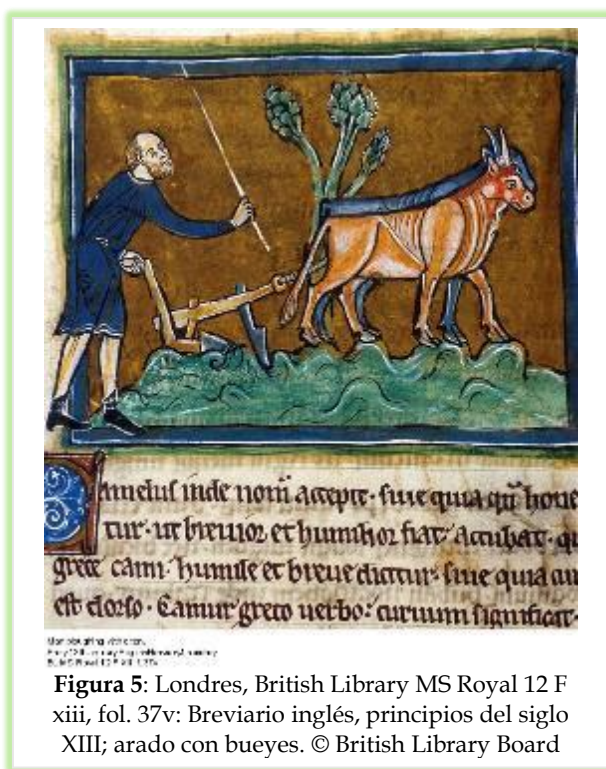 Camelus inde nom̄ accepit · siue quia qn̄ hone
tur · ut breuior et humilior fiat · accubat · qi
grece cami · humile et breue dicitur · siue quia cu
est dorso · Camur greco uerbo : curuum significat ·
Figura 5: Londres, British Library MS Royal 12 F
xiii, fol. 37v: Breviario inglés, principios del siglo
XIII; arado con bueyes. © British Library Board